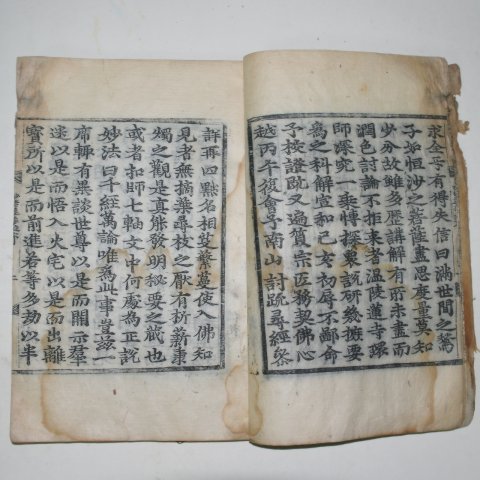 求全互有得失信曰滿世間之鶖
子如恒沙之菩薩盡思度量莫知
少分故雖多歷講解有所未盡而
潤色討論不拒來者温陵蓮寺環
師深究一乘博探衆說研幾摭要
爲之科解宣和己亥初辱不鄙命
予校證旣又遍質宗匠務契佛心
越丙午復會予南山討䟽尋經槃
詳再四黜名相芟繁蔓使入佛知
見者無摘葉尋枝之厭有析薪
燭之觀是真能發明秘要之藏也
或者扣師七軸文中何處為正說
妙法曰千經萬論唯爲此事豈茲一
席輒有異談世尊以是而開示羣
迷以是而悟入火宅以是而出離
寳所以是而前進若等多劫以